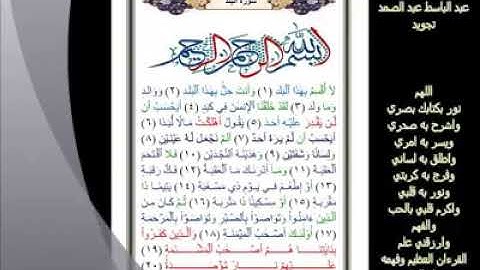 سورة البلد
بسم الله الرحمن الرحيم
لَا أُقْسِمُ بِهَٰذَا الْبَلَدِ (١) وَأَنتَ حِلٌّ بِهَٰذَا الْبَلَدِ (٢) وَوَالِدٍ
وَمَا وَلَدَ (٣) لَقَدْ خَلَقْنَا الْإِنسَٰنَ فِي كَبَدٍ (٤) أَيَحْسَبُ أَن
لَّن يَقْدِرَ عَلَيْهِ أَحَدٌ (٥) يَقُولُ أَهْلَكْتُ مَالًا لُّبَدًا (٦)
أَيَحْسَبُ أَن لَّمْ يَرَهُ أَحَدٌ (٧) أَلَمْ نَجْعَل لَّهُ عَيْنَيْنِ (٨)
وَلِسَانًا وَشَفَتَيْنِ (٩) وَهَدَيْنَٰهُ النَّجْدَيْنِ (١٠) فَلَا اقْتَحَمَ
الْعَقَبَةَ (١١) وَمَا أَدْرَىٰكَ مَا الْعَقَبَةُ (١٢) فَكُّ رَقَبَةٍ
(١٣) أَوْ إِطْعَٰمٌ فِي يَوْمٍ ذِي مَسْغَبَةٍ (١٤) يَتِيمًا ذَا
مَقْرَبَةٍ (١٥) أَوْ مِسْكِينًا ذَا مَتْرَبَةٍ (١٦) ثُمَّ كَانَ مِنَ
الَّذِينَ ءَامَنُوا وَتَوَاصَوْا بِالصَّبْرِ وَتَوَاصَوْا بِالْمَرْحَمَةِ
(١٧) أُولَٰئِكَ أَصْحَٰبُ الْمَيْمَنَةِ (١٨) وَالَّذِينَ كَفَرُوا
بِـَٔايَٰتِنَا هُمْ أَصْحَٰبُ الْمَشْـَٔمَةِ (١٩)
عَلَيْهِمْ نَارٌ مُّؤْصَدَةٌ (٢٠)
عبد الباسط عبد الصمد
تجويد
اللهم
نور بكتابك بصري
واشرح به صدري
ويسر به امري
واطلق به لساني
وفرج به كربتي
ونور به قلبي
واكرم قلبي بالحب
والفهم
وارزقني علم
القرءان العظيم وفهمه